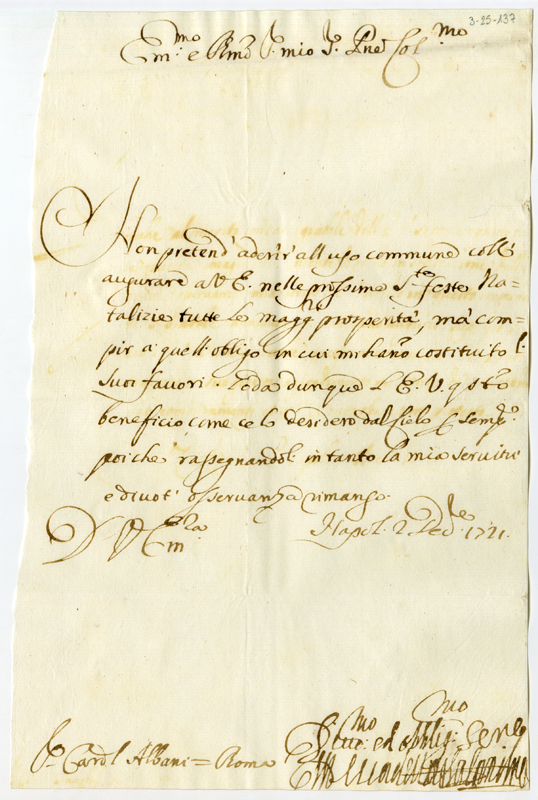 3-25-137
Em.mo e Rmo S. mio S. Pne Col.mo
Non pretend' aderir' all uso commune coll'
augurare a V. E. nelle prossime S.te feste Na=
talizie tutte le magg.ri prosperità, mà com=
pir a quell obligo in cui mi hano costituito l.
suoi favori. Goda dunque l E. V. q sto
beneficio, come ce lo desidero dal Cielo p semp.
poiche rassegnandol' in tanto la mia servitù
e divot' osservanza rimango.
D V Em.za
Napol. 2 Dec.bre 1721.
S.r Card.l Albani = Roma
Div.mo ed obblig.mo Ser.e